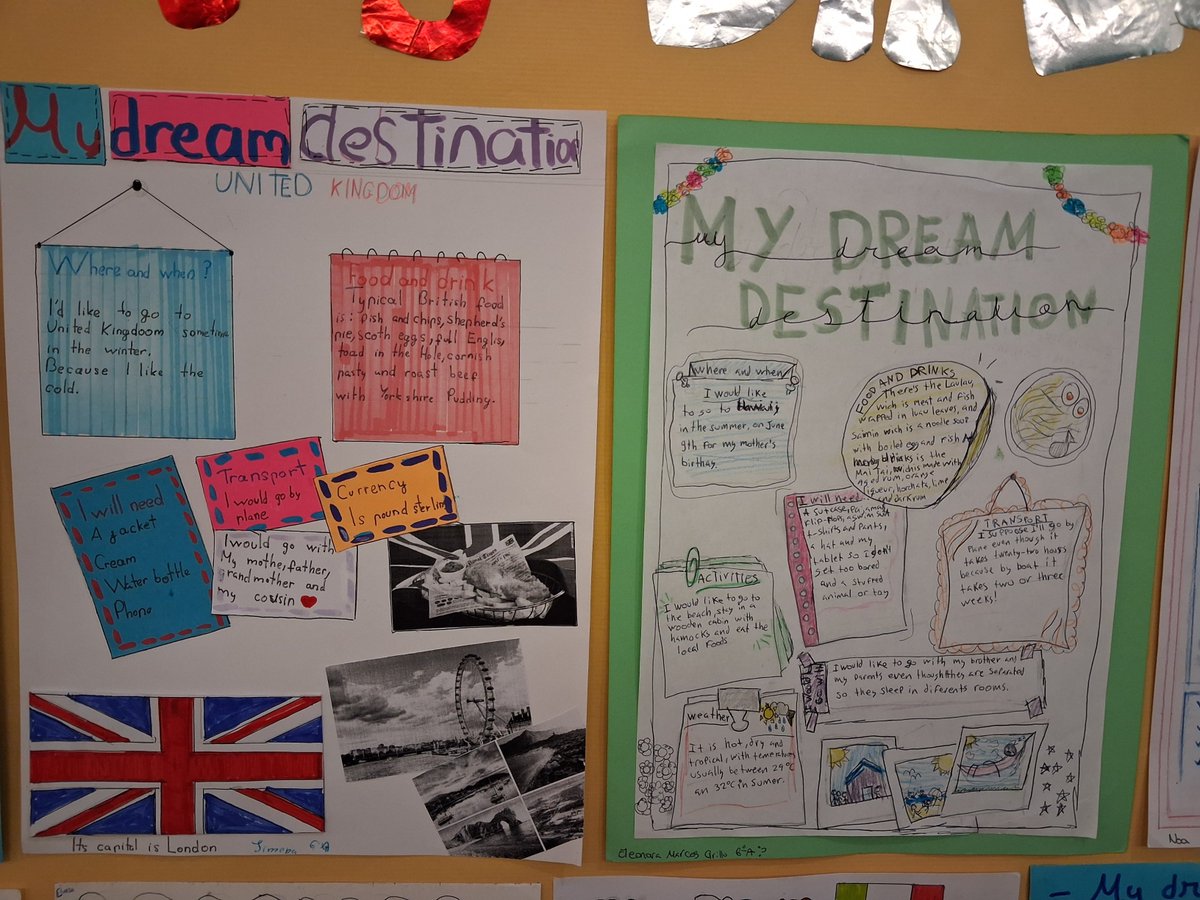 My dream destination
UNITED KINGDOM
Where and when?
I'd like to go to
United Kingdoom sometime
in the winter.
Because I like the
cold.
Food and drink
Typical British food
is: fish and chips, shepherd's
pie, scoth eggs, full Englis,
toad in the Hole, cornish
pasty and roast beef
with Yorkshire Pudding.
I will need
A jacket
Cream
Water bottle
Phone
Transport
I would go by
plane
Currency
Is pound sterling
I would go with
My mothe, father,
grandmother and
my cousin
Its capitol is London
Jimena 6ºA
MY DREAM
my dream
DESTINATION
destination
where and when
I would like
to go to
in the summer, on June
9th for my mother's
birthay.
FOOD AND DRINKS
There's the Laulau,
wich is meat and fish
wrapped in luau leaves, and
Saimin wich is a noodle soup
with boiled egg and fish
drinks is the
Mai Tai, wich is made with
aged rum, orange
liqueur, horchata, lime
and dark rum
I will need
A suitcase, pajamas,
flip-flops, a swim suit
t-shirts and pants,
a hat and my
tablet so I don't
get too bored
and a stuffed
animal or toy
TRANSPORT
I suppose I'll go by
Plane even though it
takes twenty-two hours
because by boat it
takes two or three
weeks!
Activities
I would like to go to
the beach, stay in a
wooden cabin with
hamocks and eat the
local foods
I would like to go with my brother and
my parents even though they are separated
so they sleep in diferents rooms.
weather
It is hot, dry and
tropical, with temeratures
usually between 29ºC
an 32ºC in sumer.
Eleonora Marcos Grillo 6ºA
Noa
- My dr